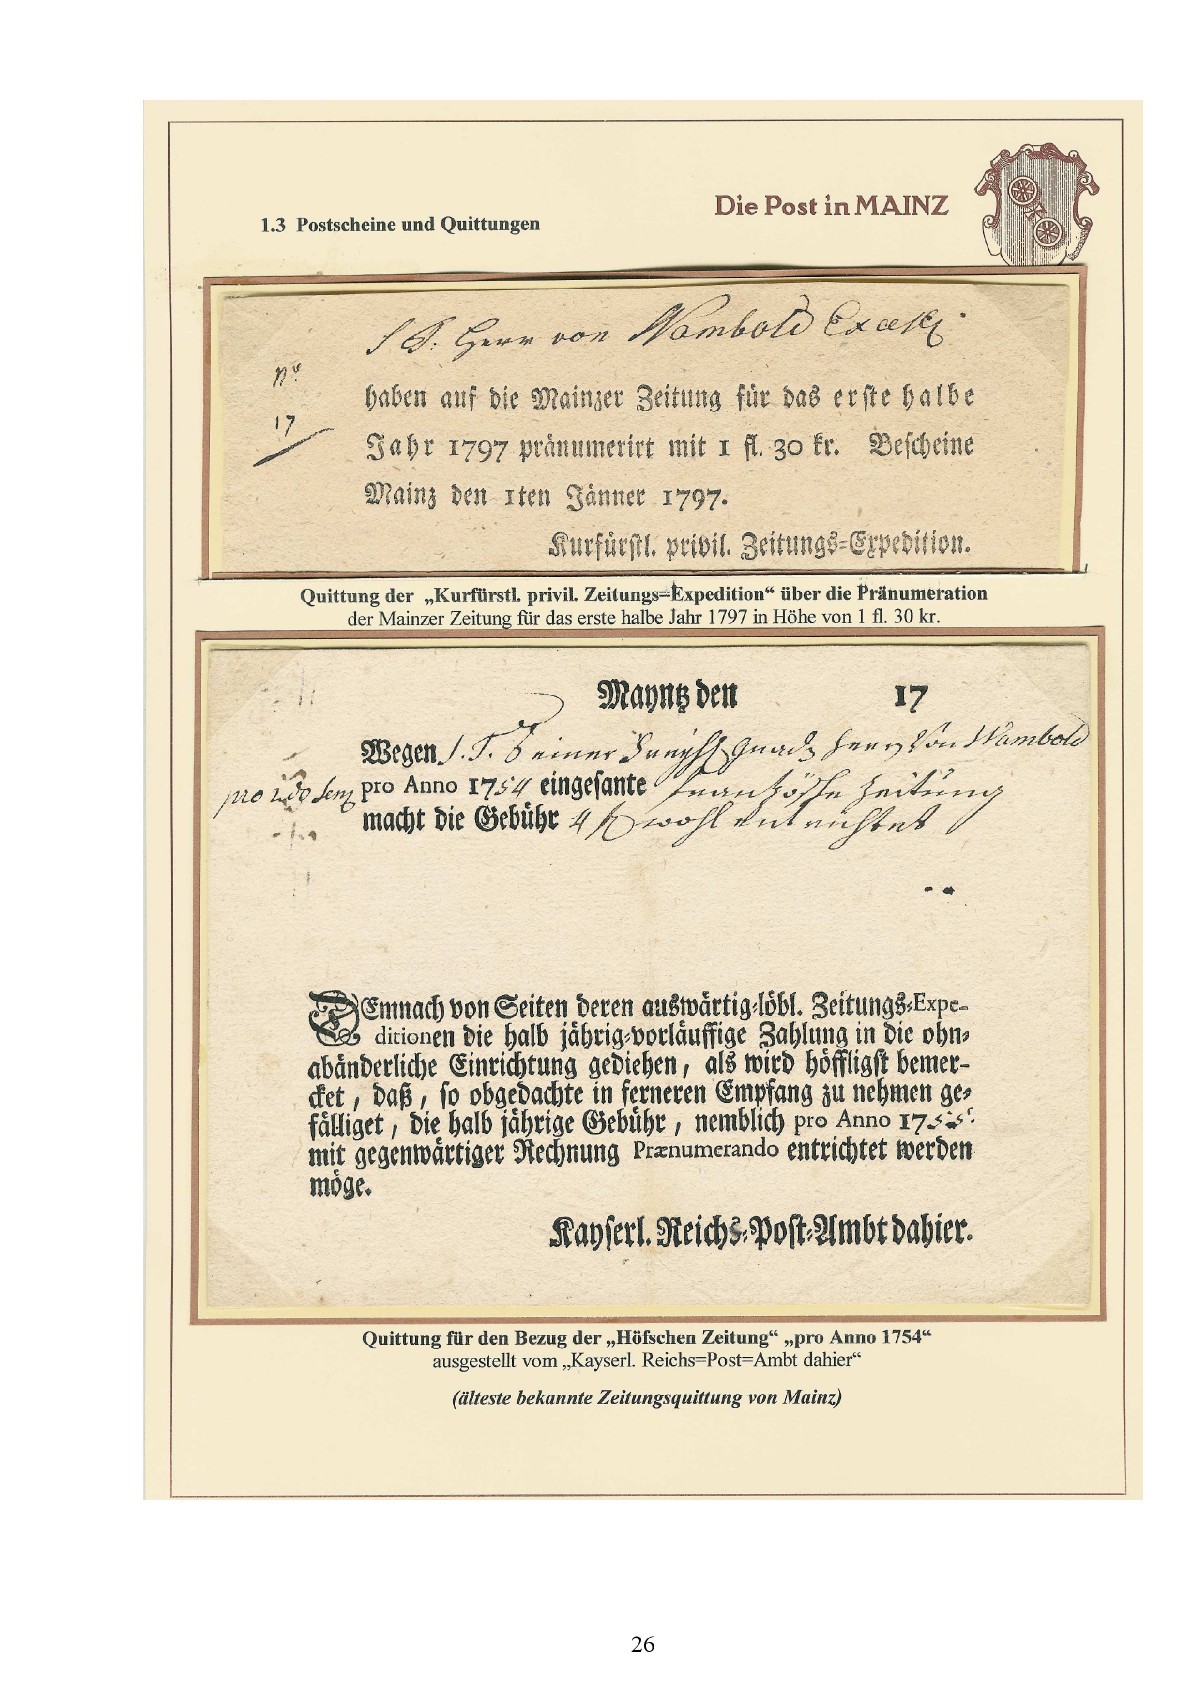 Die Post in MAINZ
1.3 Postscheine und Quittungen
S. T. Herr von Wambold Excell
No
17
haben auf die Mainzer Zeitung für das erste halbe
Jahr 1797 pränumerirt mit 1 fl. 30 kr. Bescheine
Mainz den 1ten Jänner 1797.
Kurfürstl. privil. Zeitungs=Expedition.
Quittung der „Kurfürstl. privil. Zeitungs=Expedition“ über die Pränumeration
der Mainzer Zeitung für das erste halbe Jahr 1797 in Höhe von 1 fl. 30 kr.
Mayntz den 17
Wegen S. T. Seiner Freyhl gnad Herrn von Wambold
pro Anno 1754 eingesante französche Zeitung
pro 2do Sem
macht die Gebühr 4 wohl entrichtet
DEmnach von Seiten deren auswärtig=löbl. Zeitungs=Expe-
ditionen die halb jährig=vorläuffige Zahlung in die ohn=
abänderliche Einrichtung gediehen, als wird höffligst bemer-
cket, daß, so obgedachte in ferneren Empfang zu nehmen ge=
fälliget, die halb jährige Gebühr, nemblich pro Anno 1755.
mit gegenwärtiger Rechnung Prænumerando entrichtet werden
möge.
Kayserl. Reichs=Post=Ambt dahier.
Quittung für den Bezug der „Höfschen Zeitung“ „pro Anno 1754“
ausgestellt vom „Kayserl. Reichs=Post=Ambt dahier“
(älteste bekannte Zeitungsquittung von Mainz)
26